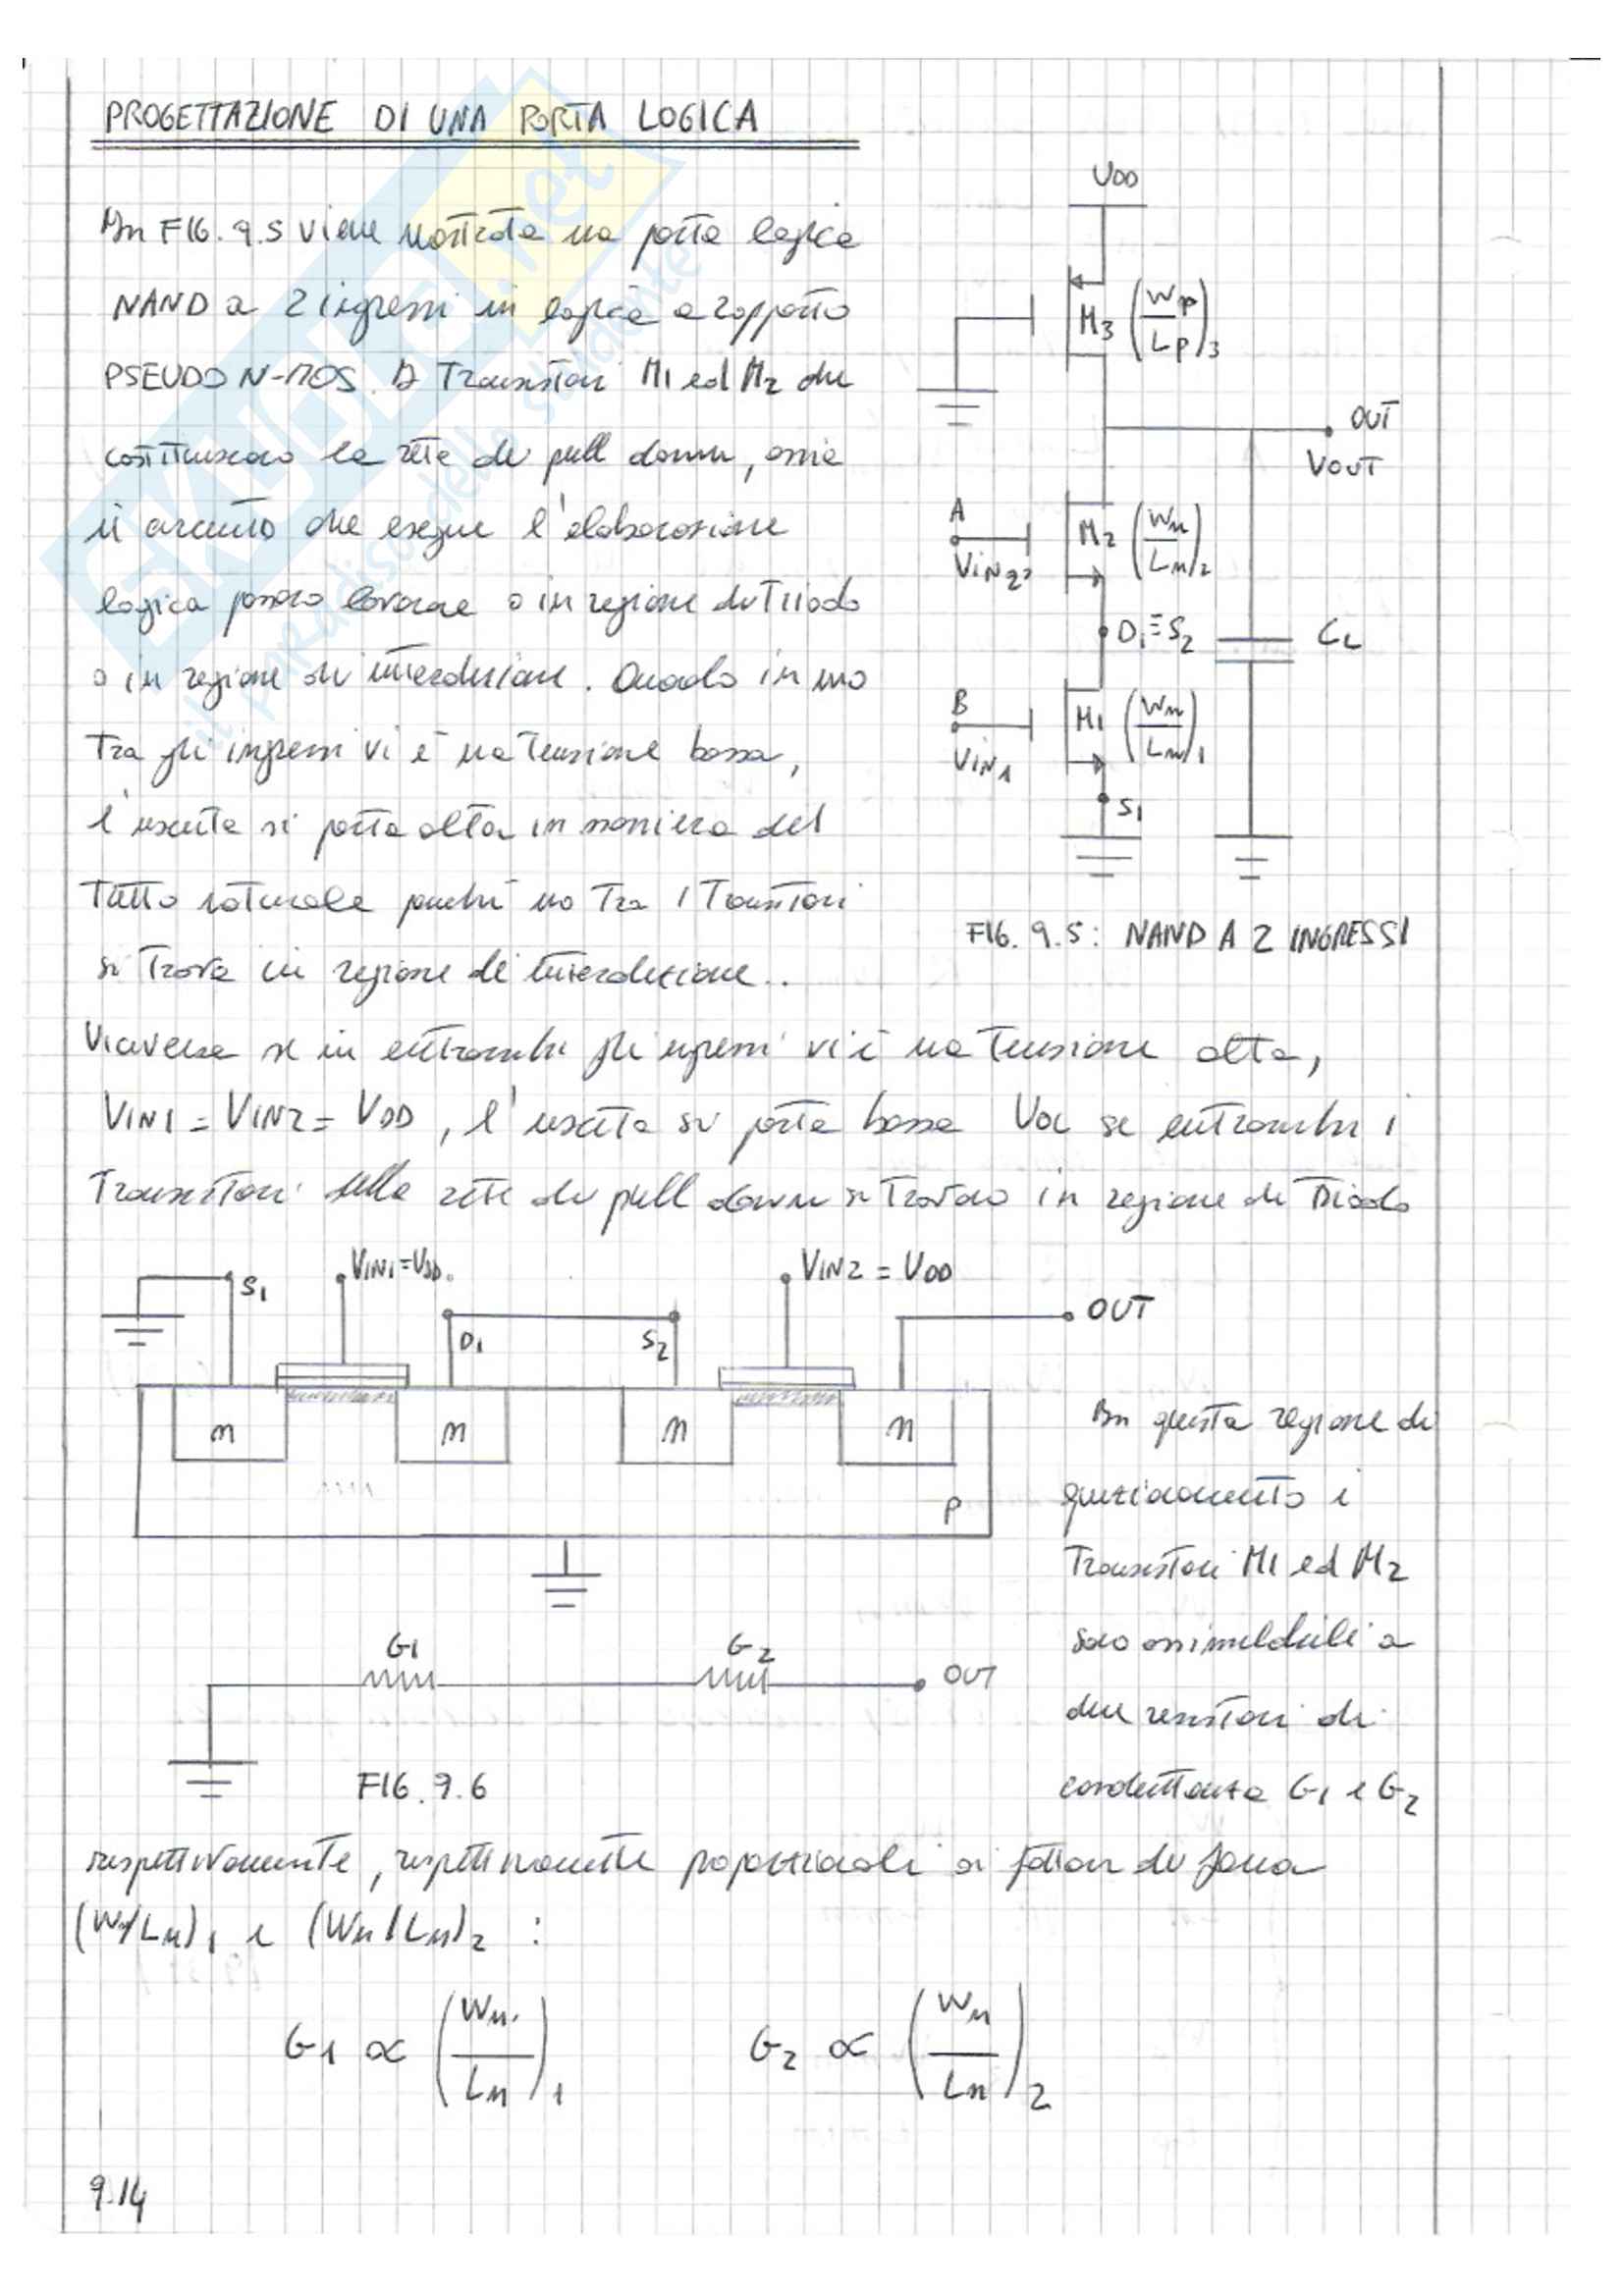 PROGETTAZIONE DI UNA PORTA LOGICA
In FIG. 9.5 viene mostrata una porta logica
NAND a 2 ingressi in logica a rapporto
PSEUDO N-MOS. I Transistori M1 ed M2 che
costituiscono la rete di pull down, ossia
il circuito che esegue l'elaborazione
logica possono lavorare o in regione di Triodo
o in regione di interdizione. Quando in uno
Tra gli ingressi vi è una Tensione bassa,
l'uscita si porta alta in maniera del
Tutto naturale perché uno Tra i Transistori
si Trova in regione di interdizione..
VDD
M3 (Wp/Lp)3
OUT
VOUT
A
VIN2
M2 (Wn/Ln)2
D1≡S2
CL
B
VIN1
M1 (Wn/Ln)1
S1
FIG. 9.5: NAND A 2 INGRESSI
Viceversa se in entrambi gli ingressi vi è una Tensione alta,
VIN1 = VIN2 = VDD, l'uscita si porta bassa VOL se entrambi i
Transistori della rete di pull down si Trovano in regione di Triodo
S1
VIN1=VDD
D1
S2
VIN2 = VDD
OUT
n
n
n
n
P
G1
G2
OUT
FIG. 9.6
In questa regione di
funzionamento i
Transistori M1 ed M2
sono assimilabili a
due resistori di
conduttanza G1 e G2
rispettivamente, rispettivamente proporzionali ai fattori di forma
(Wn/Ln)1 e (Wn/Ln)2 :
G1 ∝ (Wn/Ln)1 G2 ∝ (Wn/Ln)2
9.14
SKUOLA.net
il paradiso dello studente